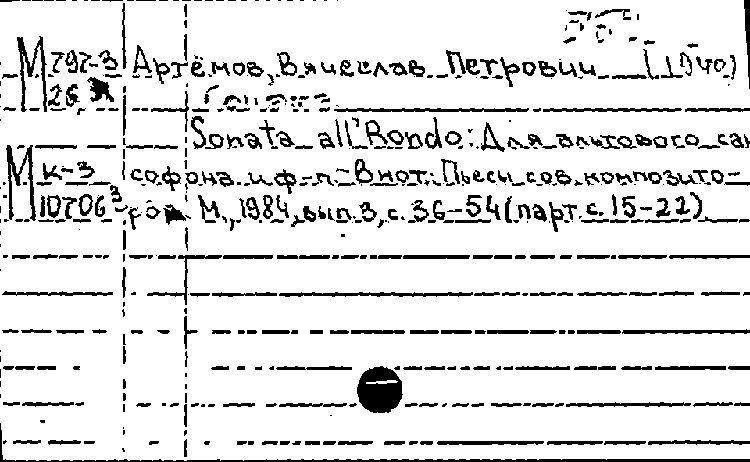 М 797-3 Артёмов, Вячеслав Петрович (1940)
26
Sonata all'Rondo: Для альтового сак
М к-3 софона и ф-п.- В нот.: Пьесы сов. композито-
10706 3 ров М., 1984, вып. 3, с. 36-54 (парт. с. 15-22)